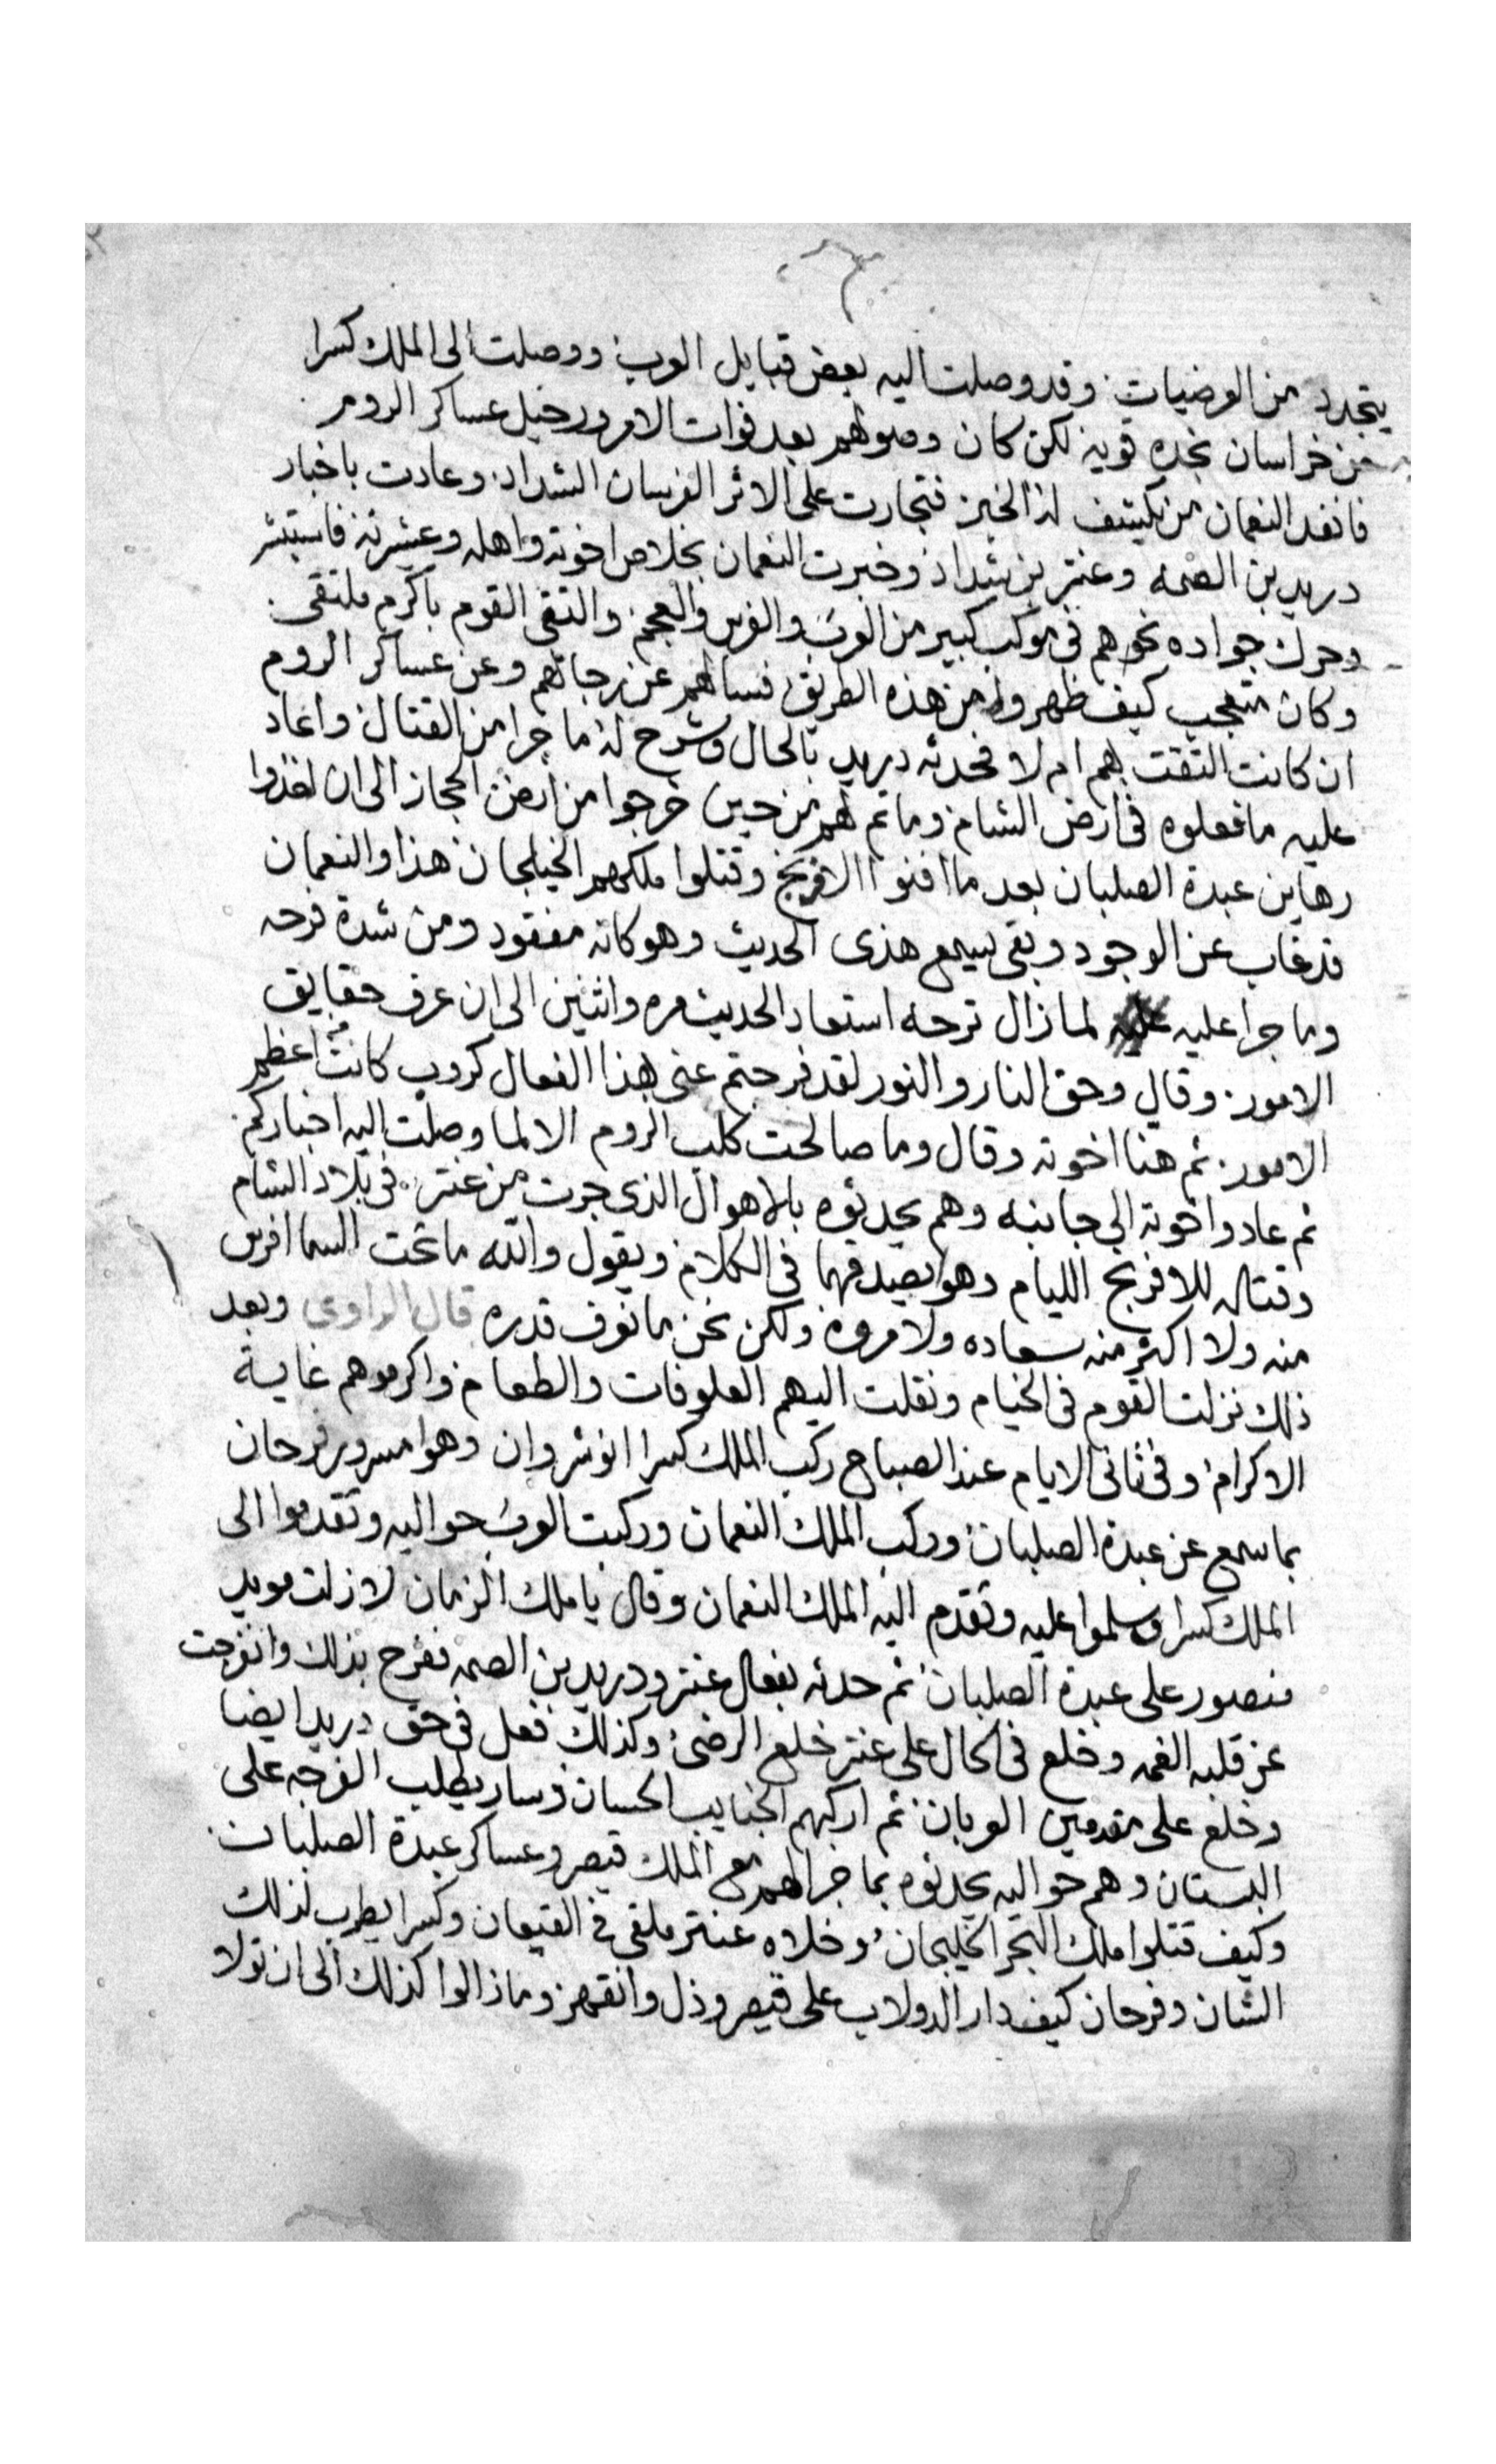 يتجدد من العرضيات وقد وصلت اليه بعض قبايل العرب ووصلت الى الملك كسرا
من خراسان نجده قويه لكن كان وصولهم بعد فوات الامر ورحيل عساكر الروم
فانفد النعمان من يكشف له الخبر فتجارت على الاثر الفرسان الشداد وعادت باخبار
دريد بن الصمه وعنتر بن شداد وخبرت النعمان بخلاص اخوته واهله وعشرته فاستبشر
وحرك جواده نحوهم في موكب كبير من العرب والفرس والعجم والتقى القوم باكرم ملتقى
وكان متعجب كيف ظهروا من هذه الطريق فسالهم عن رجالهم وعن عساكر الروم
ان كانت التقت بهم ام لا فحدثه دريد بالحال وشرح له ما جرا من القتال واعاد
عليه ما فعلوه في ارض الشام وما تم لهم من حين خرجوا من ارض الحجاز الى ان اخذوا
رهاين عبدة الصلبان بعد ما افنوا الافرنج وقتلوا ملكهم الخيلجان هذا والنعمان
قد غاب عن الوجود وبقى يسمع هذى الحديث وهو كانه مفقود ومن شدة فرحه
وما جرا عليه عليه لما زال ترحه استعاد الحديث مره واثنين الى ان عرف حقايق
الامور وقال وحق النار والنور لقد فرجتم عنى بهذا الفعال كروب كانت اعظم
الامور ثم هنا اخوته وقال وما صالحت كلب الروم الا لما وصلت اليه اخباركم
ثم عادوا اخوته الى جانبه وهم يحدثوه بالاهوال الذى جرت من عنتر في بلاد الشام
وقتاله للافرنج الليام وهو يصدقهما في الكلام ويقول والله ما تحت السما افرس
منه ولا اكثر منه سعاده ولا مروه ولكن نحن ما نعرف قدره قال الراوى وبعد
ذلك نزلت القوم في الخيام ونقلت اليهم العلوفات والطعام واكرموهم غاية
الاكرام وفي ثانى الايام عند الصباح ركب الملك كسرا انوشروان وهوا مسرور فرحان
بما سمع عن عبدة الصلبان وركب الملك النعمان وركبت العرب حواليه وتقدموا الى
الملك كسرا وسلموا عليه وتقدم اليه الملك النعمان وقال يا ملك الزمان لا زلت مويد
منصور على عبدة الصلبان ثم حدثه بفعال عنتر ودريد بن الصمه ففرح بذلك وانفرجت
عن قلبه الغمه وخلع في الحال على عنتر خلع الرضى وكذلك فعل في حق دريد ايضا
وخلع على مقدمين العربان ثم اركبهم الجنايب الحسان وسار يطلب الفرجه على
البستان وهم حواليه يحدثوه بما جرا لهم مع الملك قيصر وعساكر عبدة الصلبان
وكيف قتلوا ملك البحر الخليجان وخلاه عنتر ملقى في القيعان وكسرا يطرب لذلك
الشان وفرحان كيف دار الدولاب على قيصر وذل وانقهر وما زالوا كذلك الى ان تولا